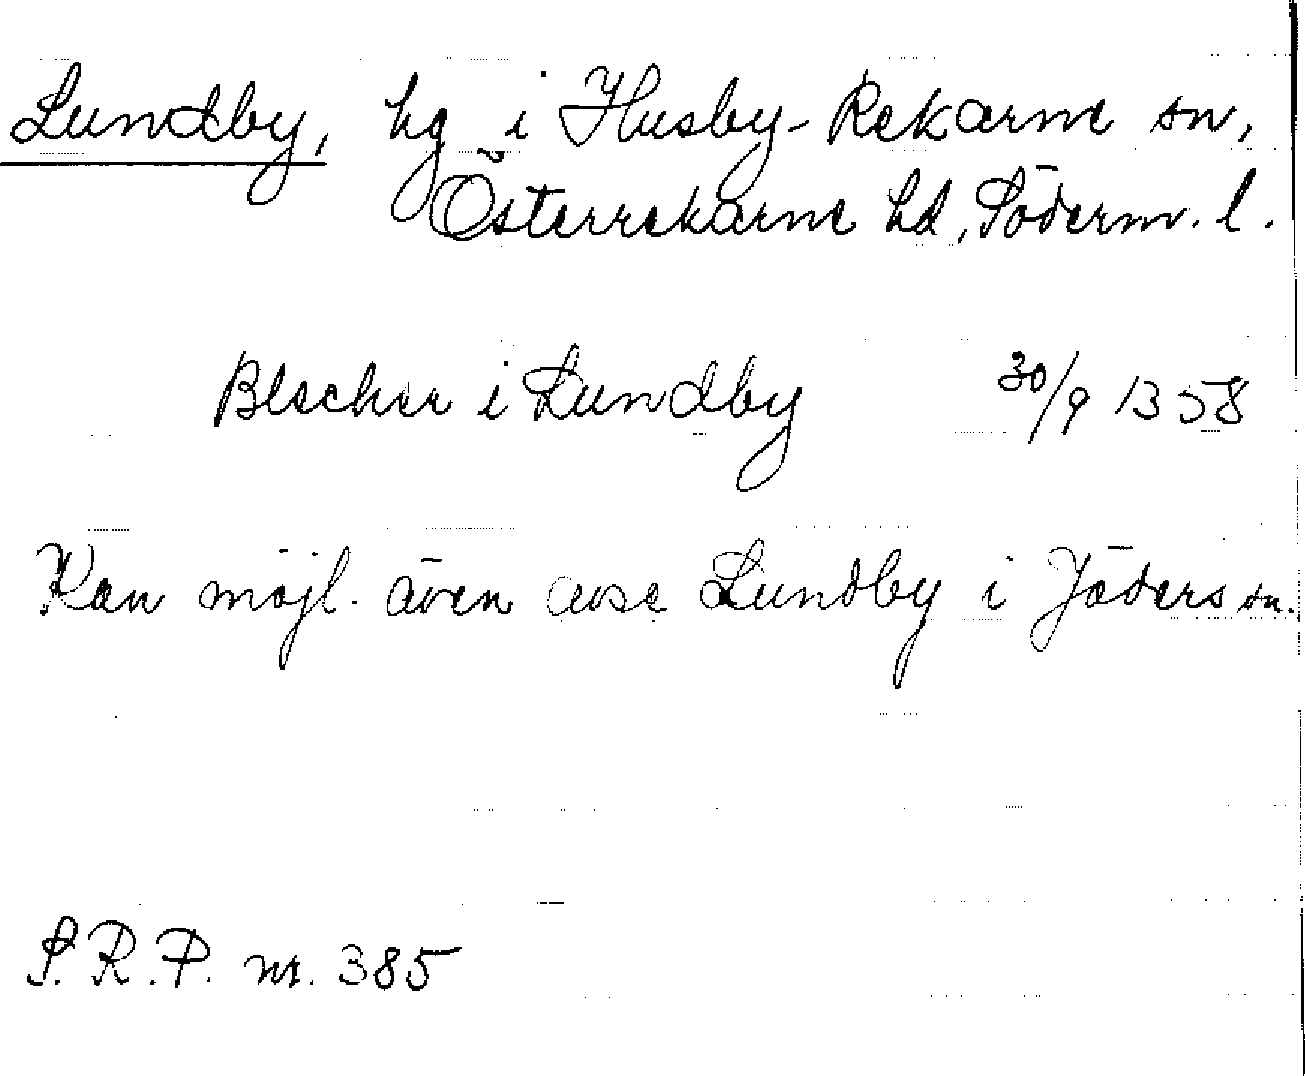 Lundby, hg i Husby-Rekarne sn,
Österrekarne hd, Söderm. l.
Blecker i Lundby 30/9 1358
Kan möjl. även avse Lundby i Jäders sn.
S.R.P. nr. 385